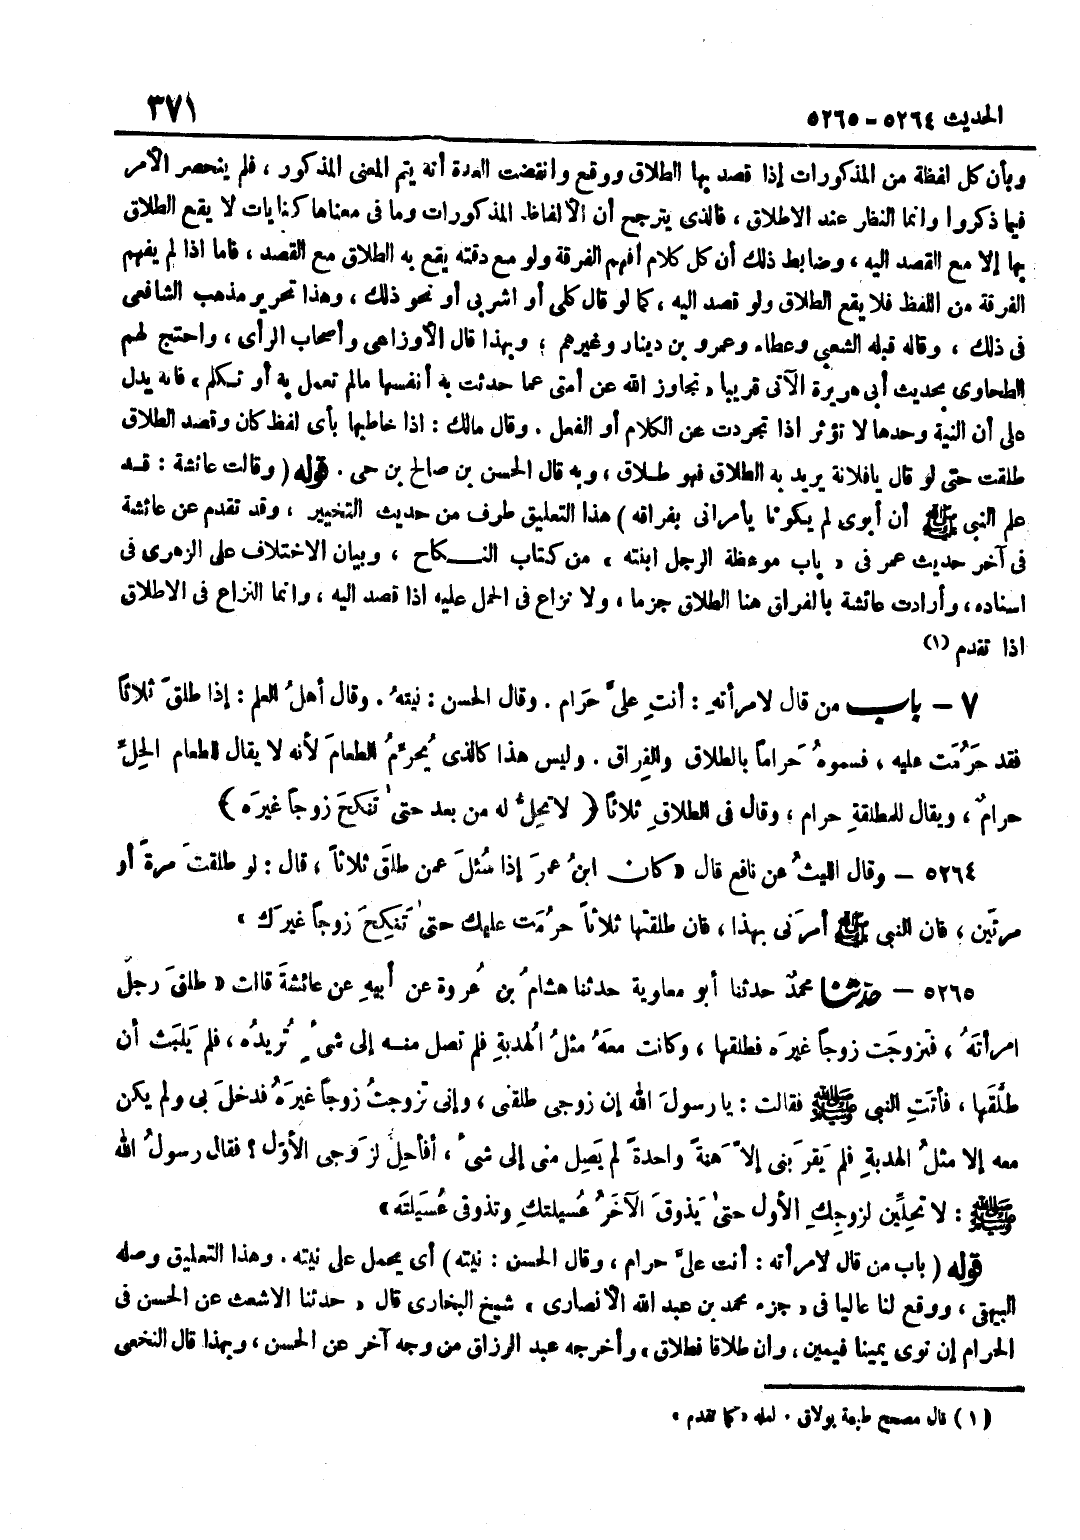 الحديث ٥٢٦٤ - ٥٢٦٥
٣٧١
وبأن كل لفظة من المذكورات إذا قصد بها الطلاق ووقع وانقضت العدة أنه يتم المعنى المذكور ، فلم ينحصر الأمر
فيما ذكروا وانما النظر عند الاطلاق ، فالذى يترجح أن الألفاظ المذكورات وما فى معناها كنايات لا يقع الطلاق
بها إلا مع القصد اليه ، وضابط ذلك أن كل كلام أفهم الفرقة ولو مع دقته يقع به الطلاق مع القصد ، فاما اذا لم يفهم
الفرقة من اللفظ فلا يقع الطلاق ولو قصد اليه ، كما لو قال كلى أو اشربى أو نحو ذلك ، وهذا تحرير مذهب الشافعى
فى ذلك ، وقاله قبله الشعبي وعطاء وعمرو بن دينار وغيرهم ؛ وبهذا قال الأوزاعى وأصحاب الرأى ، واحتج لهم
الطحاوى بحديث أبى هريرة الآتى قريبا « تجاوز الله عن أمتى عما حدثت به أنفسها مالم تعمل به أو تكلم » فانه يدل
على أن النية وحدها لا تؤثر اذا تجردت عن الكلام أو الفعل . وقال مالك : اذا خاطبها بأى لفظ كان وقصد الطلاق
طلقت حتى لو قال يافلانة يريد به الطلاق فهو طلاق ، وبه قال الحسن بن صالح بن حى . قوله ( وقالت عائشة : قد
علم النبى ﷺ أن أبوى لم يكونا يأمرانى بفراقه ) هذا التعليق طرف من حديث التخيير ، وقد تقدم عن عائشة
فى آخر حديث عمر فى « باب موعظة الرجل ابنته » من كتاب النكاح ، وبيان الاختلاف على الزهرى فى
اسناده ، وأرادت عائشة بالفراق هنا الطلاق جزما ، ولا نزاع فى الحمل عليه اذا قصد اليه ، وانما النزاع فى الاطلاق
اذا تقدم (١)
٧ - باب من قال لامرأتهِ : أنتِ علىَّ حرَام . وقال الحسن : نيتهُ . وقال أهلُ العلم : إذا طلقَ ثلاثاً
فقد حرُمَت عليه ، فسموهُ حَراماً بالطلاق والفِراق . وليس هذا كالذى يُحرِّمُ الطعامَ لأنه لا يقال للطعام الحِلِّ
حرامٌ ، ويقال للمطلقةِ حرام ؛ وقال فى الطلاقِ ثلاثاً ( لا تحِلُّ له من بعد حتىٰ تَنكحَ زوجاً غيرَه )
٥٢٦٤ - وقال الليثُ عن نافع قال « كان ابنُ عمرَ إذا سُئلَ عمن طلقَ ثلاثاً ، قال : لو طلقتَ مرةً أو
مرتَين ، فان النبى ﷺ أمرَنى بهذا ، فان طلقتَها ثلاثاً حرُمَت عليك حتىٰ تَنكِحَ زوجاً غيرَك »
٥٢٦٥ - حدثنا محمدٌ حدثنا أبو معاوية حدثنا هشامُ بن عُروة عن أبيهِ عن عائشةَ قالت « طلقَ رجلٌ
امرأتَهُ ، فتزوجَت زوجاً غيرَه فطلقها ، وكانت معَهُ مثلُ الهُدبةِ فلم تصل منه إلى شىءٍ تُريدُه ، فلم يَلبَث أن
طلَّقَها ، فأتَتِ النبى ﷺ فقالت : يا رسولَ الله إن زوجى طلقنى ، وإنى تزوجتُ زوجاً غيرَهُ فدخلَ بى ولم يكن
معه إلا مثلُ الهدبةِ فلم يَقرَبنى إلا هَنةً واحدةً لم يَصِل منى إلى شىء ، أفأحِلُّ لزَوجى الأوّل ؟ فقال رسولُ الله
ﷺ : لا تحلِّين لزوجِكِ الأول حتىٰ يَذوقَ الآخَرُ عُسيلتكِ وتذوقى عُسَيلتَه »
قوله ( باب من قال لامرأته : أنت علىَّ حرام ، وقال الحسن : نيته ) أى يحمل على نيته . وهذا التعليق وصله
البيهقى ، ووقع لنا عاليا فى « جزء محمد بن عبد الله الأنصارى » شيخ البخارى قال « حدثنا الاشعث عن الحسن فى
الحرام إن نوى يمينا فيمين ، وان طلاقا فطلاق » وأخرجه عبد الرزاق من وجه آخر عن الحسن ، وبهذا قال النخعى
(١) قال مصحح طبعة بولاق . لعله « كما تقدم »